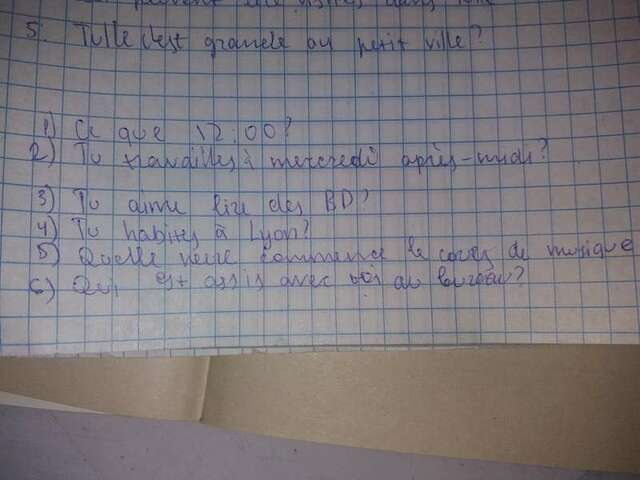 5. Tulle c'est grande ou petit ville?
1) Ce que 12:00?
2) Tu travailles à mercredi après-midi?
3) Tu aime lire des BD?
4) Tu habites à Lyon?
5) Quelle commence le cours de musique
6) Qui est assis avec toi au bureau?